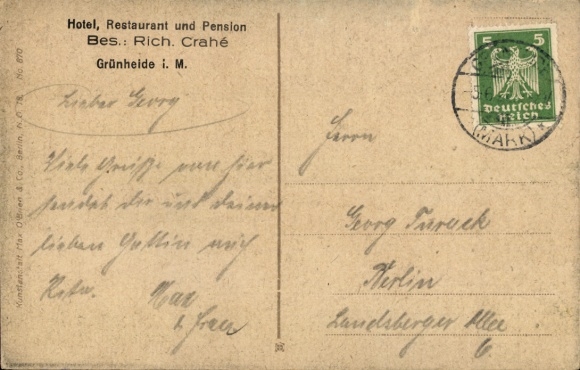 Hotel, Restaurant und Pension
Bes.: Rich. Crahé
Grünheide i. M.
Lieber Georg
Viele Grüsse von hier
sendet dir und deiner
lieben Gattin auch
Max
Kunstanstalt Max O'Brien & Co., Berlin, N.O. 18. No. 870
5 5
Deutsches
Reich
(MARK)
Herrn
Georg
Berlin
Landsberger Allee
6.